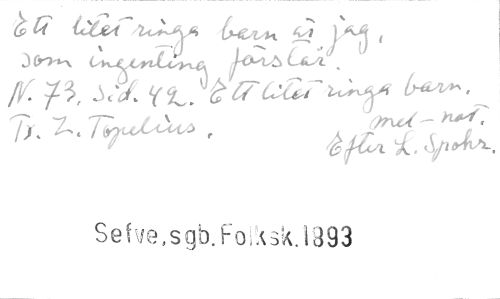 Ett litet ringa barn är jag,
som ingenting förstår.
N. 73. Sid. 42. Ett litet ringa barn.
mel-not.
Tx. Z. Topelius.
Efter L. Spohr.
Sefve,sgb.Folksk.1893